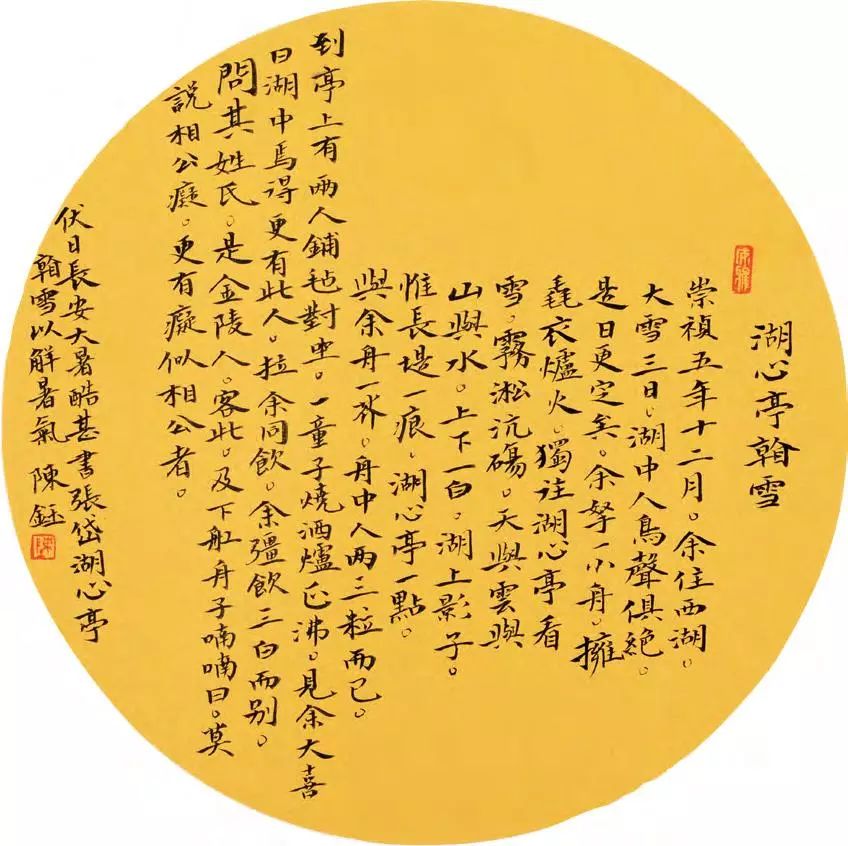 湖心亭翰雪
崇禎五年十二月。余住西湖。
大雪三日。湖中人鳥聲俱絕。
是日更定矣。余拏一小舟。擁
毳衣爐火。獨往湖心亭看
雪。霧淞沆碭。天與雲與
山與水。上下一白。湖上影子。
惟長堤一痕。湖心亭一點。
與余舟一芥。舟中人兩三粒而已。
到亭上有兩人鋪氈對坐。一童子燒酒爐正沸。見余大喜
曰湖中焉得更有此人。拉余同飲。余彊飲三白而别。
問其姓氏。是金陵人。客此。及下舡舟子喃喃曰。莫
說相公癡。更有癡似相公者。
伏日長安大暑酷甚書張岱湖心亭
翰雪以解暑氣 陳鈺